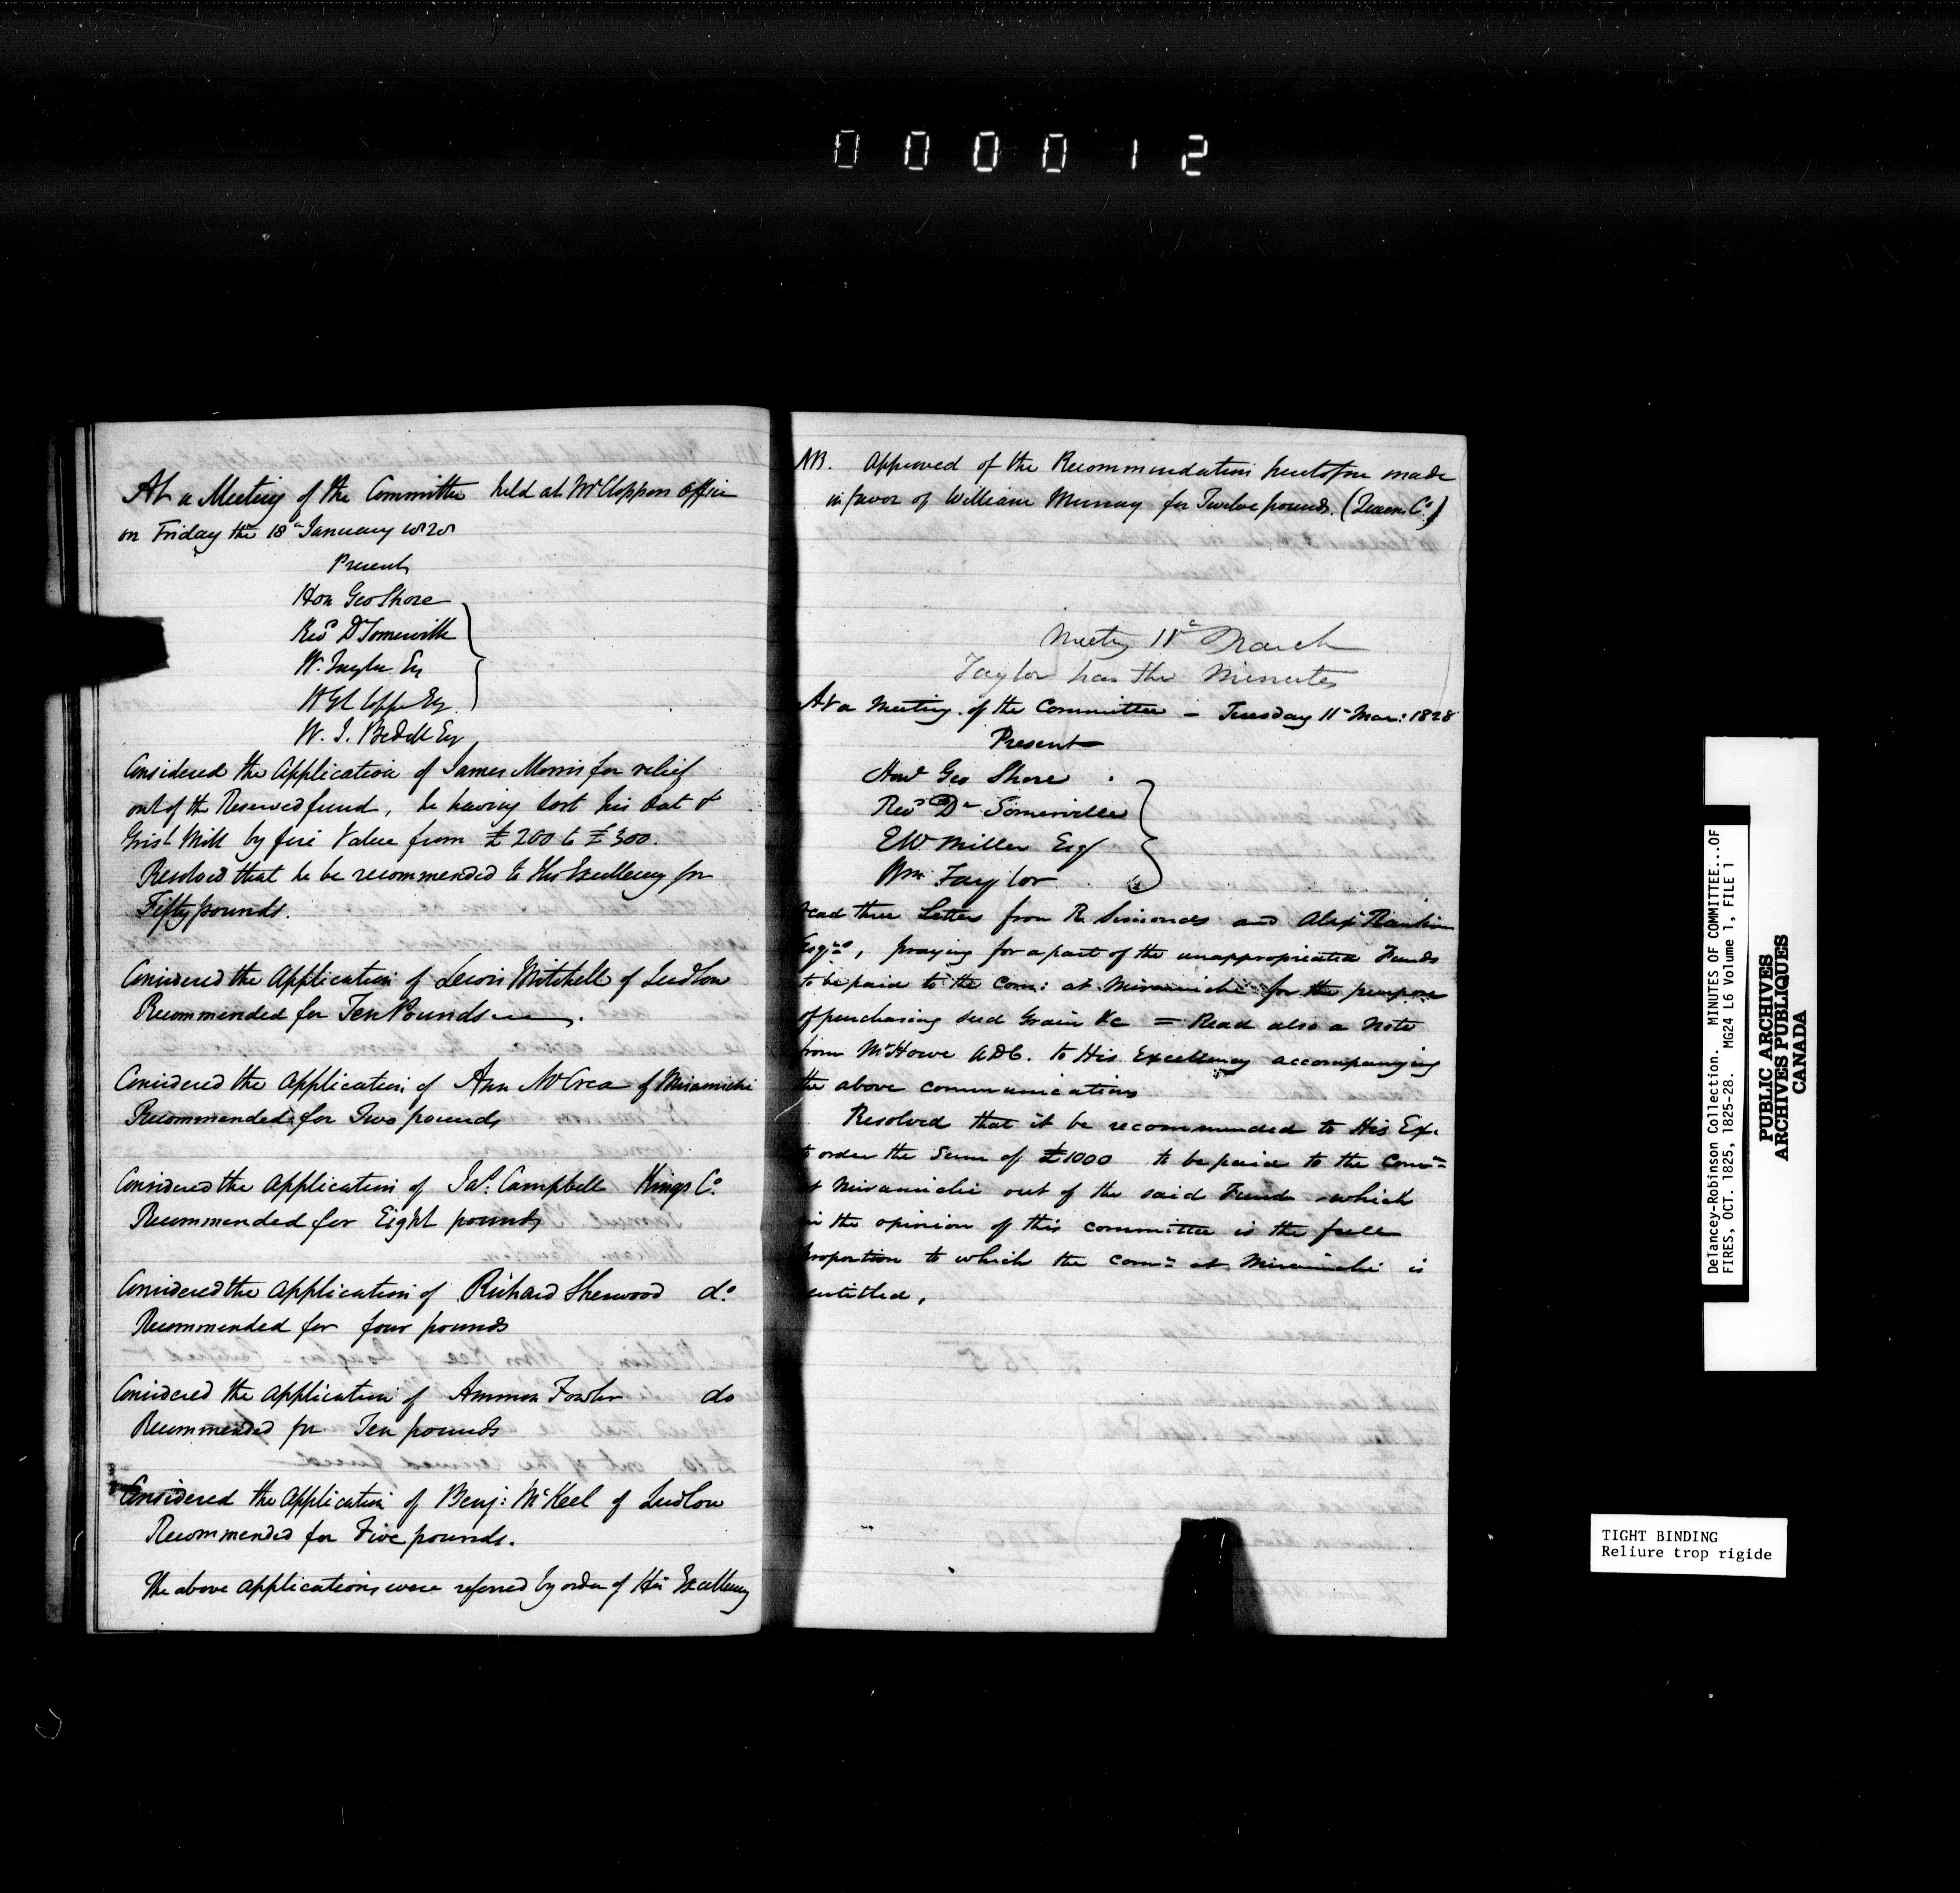 000012
At a Meeting of the Committee held at Mr Cloppers Office
on Friday the 18th January 1828
Present
Hon Geo Shore
Revd Dr Somerville
W. Taylor Esq
W. J. Bedell Esq
Considered the Application of James Morris for relief
out of the Reserved fund, he having lost his Oat &
Grist Mill by fire Value from £200 to £300.
Resolved that he be recommended to His Excellency for
Fifty pounds.
Considered the Application of Lewis Mitchell of Ludlow
Recommended for Ten Pounds
Considered the Application of Ann McCrea of Miramichi
Recommended for Two pounds
Considered the Application of Jas. Campbell Kings Co.
Recommended for Eight pounds
Considered the Application of Richard Sherwood do.
Recommended for four pounds
Considered the Application of Ammon Fowler do
Recommended for Ten pounds
Considered the Application of Benj: McKeel of Ludlow
Recommended for Five pounds.
The above Applications were referred by order of His Excellency
NB. Approved of the Recommendation heretofore made
in favor of William Murray for Twelve pounds. (Queens Co.)
Meeting 11th March
Taylor has the Minutes
At a Meeting of the Committee – Tuesday 11th Mar: 1828
Present
Honl Geo Shore
Revd Dr Somerville
EW Miller Esq
Wm Taylor
Read three Letters from R. Simonds and Alexr Rankin
Esqrs, praying for a part of the unappropriated Funds
to be paid to the Com: at Miramichi for the purpose
of purchasing seed Grain &c = Read also a Note
from Mr Howe ADC. to His Excellency accompanying
the above communications
Resolved that it be recommended to His Ex.
to order the Sum of £1000 to be paid to the Comee
at Miramichi out of the said Fund which
in the opinion of this committee is the full
proportion to which the Comee at Miramichi is
entitled,
Delancey-Robinson Collection. MINUTES OF COMMITTEE...OF
FIRES, OCT. 1825, 1825-28. MG24 L6 Volume 1, FILE 1
PUBLIC ARCHIVES
ARCHIVES PUBLIQUES
CANADA
TIGHT BINDING
Reliure trop rigide